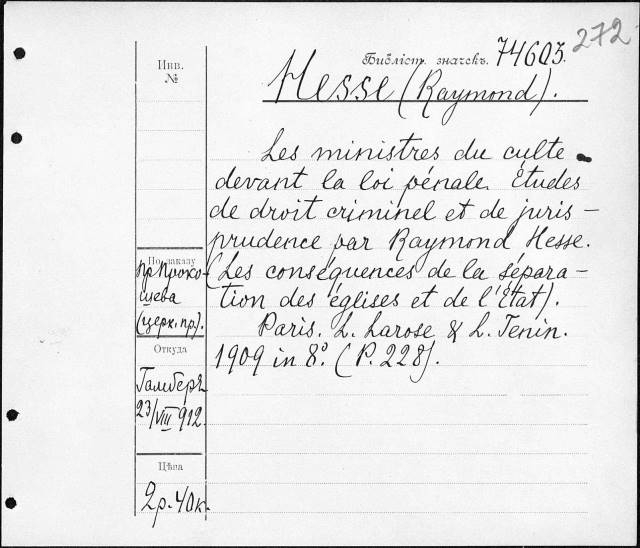 272
Инв.
№
Библіот. значекъ. 74603.
Hesse (Raymond).
Les ministres du culte
devant la loi pénale. Études
de droit criminel et de juris-
prudence par Raymond Hesse.
(Les conséquences de la sépara-
tion des églises et de l'État).
Paris. L. Larose & L. Tenin.
1909 in 8°. (P. 228).
По заказу
пр. Прохо-
щева
(церк. пр.).
Откуда
Гамберъ
23/VIII 912.
Цѣна
2р. 40к.